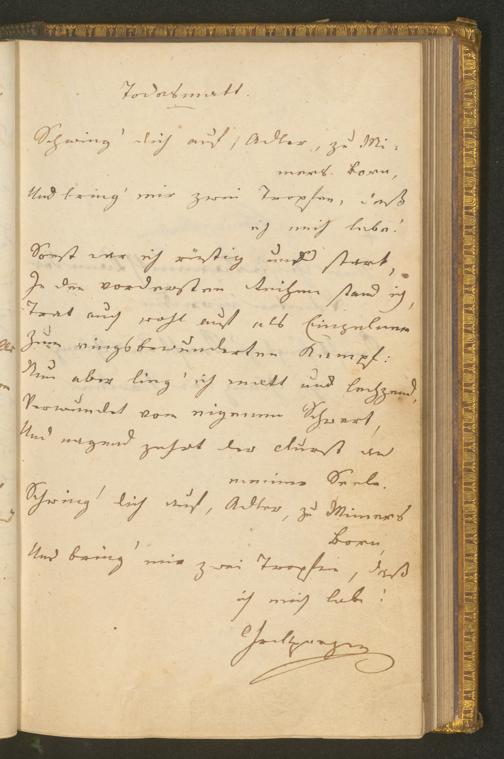 Todesmatt.
Schwing' dich auf, Adler, zu Mi-
mers Born,
Und bring' mir zwei Tropfen, daß
ich mich labe!
Sonst war ich rüstig und stark,
In den vordersten Reihen stand ich,
Trat auch wohl auf als Einzelner
Zum ringsbewunderten Kampf:
Nun aber lieg' ich matt und lechzend,
Verwundet vom eigenen Schwert,
Und nagend zehrt der Durst an
meiner Seele.
Schwing' dich auf, Adler, zu Mimers
Born,
Und bring' mir zwei Tropfen, daß
ich mich labe!